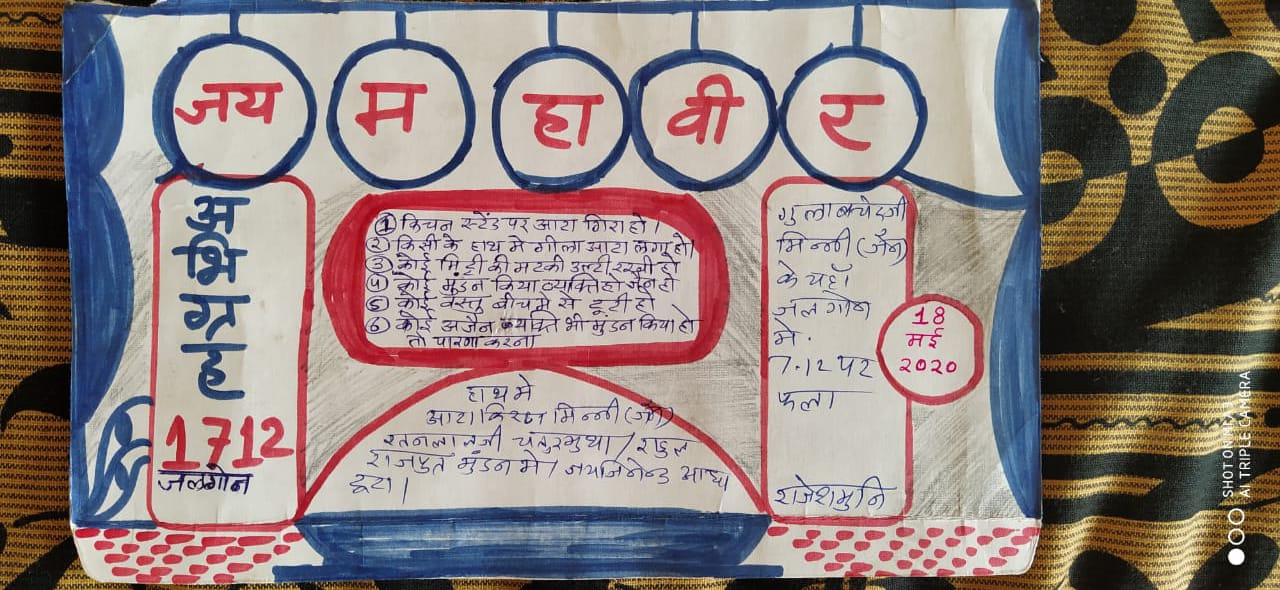 जय महावीर
अभिग्रह
1712
जलगोन
① किचन स्टेंड पर आटा गिरा हो।
② किसी के हाथ मे गीला आटा लगा हो।
③ कोई मिट्टी की मटकी उल्टी रखी हो
④ कोई मुंडन किया व्यक्ति हो
⑤ कोई वस्तु बीच मे से टूटी हो
⑥ कोई अजैन व्यक्ति भी मुंडन किया हो
तो पारणा करना
हाथ मे
आटा किरण मिन्नी (जैन)
रतनलालजी चतुरमुथा / राहुल
राजपुत मुंडन मे / जयजिनेन्द्र आधा
टूटा।
गुलाबचंदजी
मिन्नी (जैन)
के यहाँ
जलगोन
मे.
7.12 पर
फला
राजेशमुनि
18
मई
2020
SHOT ON MI
AI TRIPLE CAMERA